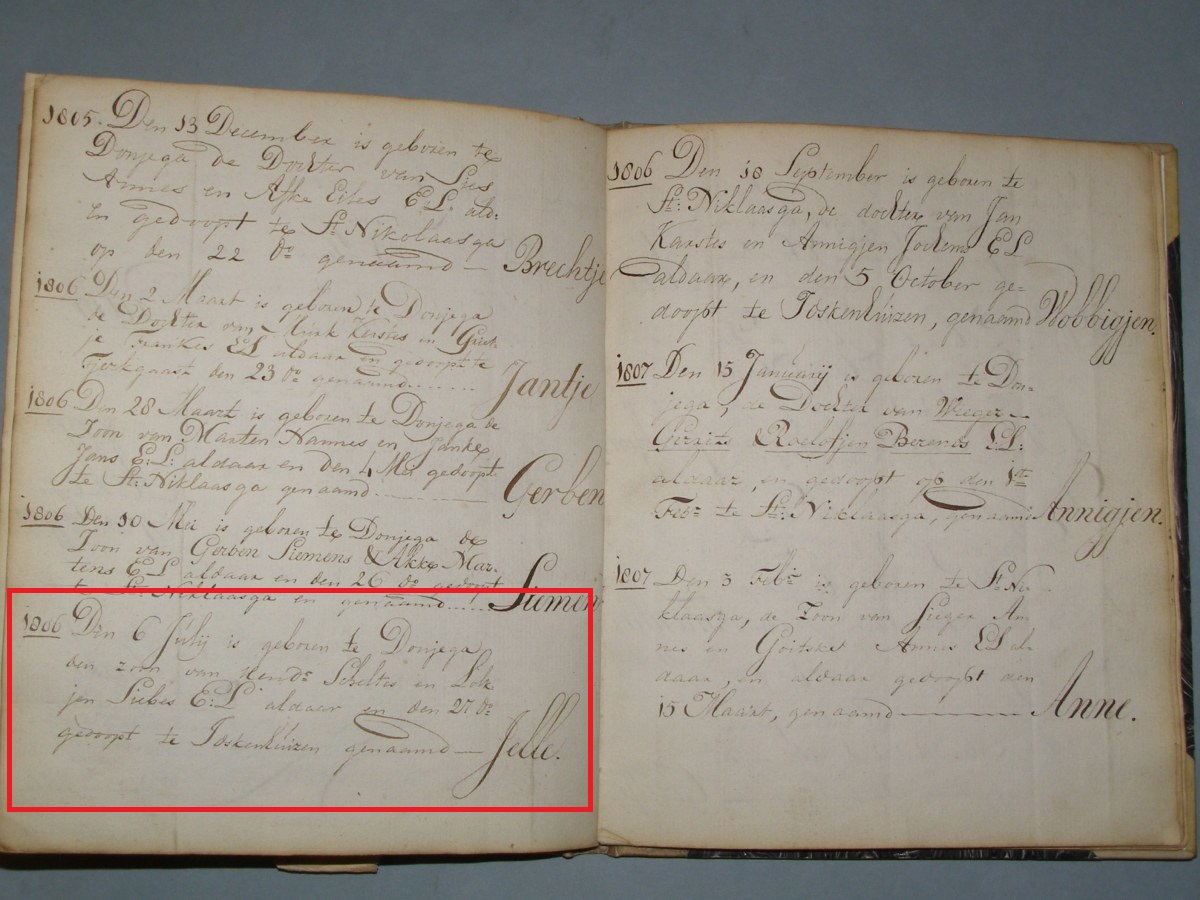 1805. Den 13 December is geboren te
Donjega de Dochter van Sies
Annes en Afke Eites E.L. ald:
En gedoopt te St. Nikolaasga
op den 22 do genaamd — Brechtje
1806 Den 2 Maart is geboren te Donjega
de Dochter van Murk Kerstes en Griet-
je Frankes EL aldaar en gedoopt te
Tjerkgaast den 23 do genaamd........ Jantje
1806 Den 28 Maart is geboren te Donjega de
Zoon van Marten Nannes en Janke
Jans E:L: aldaar en den 4 Mei gedoopt
te St: Niklaasga genaamd........ Gerben
1806 Den 10 Mei is geboren te Donjega de
Zoon van Gerben Siemens & Akke Mar-
tens EL aldaar en den 26 do gedoopt
te St: Niklaasga en genaamd...... Siemen
1806 Den 6 Julij is geboren te Donjega
den zoon van Hendr Scheltes en Lok
jen Siebes E:L aldaar en den 27 do
gedoopt te Joskenhuizen genaamd — Jelle.
1806 Den 18 September is geboren te
St: Niklaasga, de dochter van Jan
Karstes en Annigjen Jochems EL
aldaar, en den 5 October ge=
doopt te Joskenhuizen, genaamd Wobbigjen.
1807 Den 15 Januarij is geboren te Don-
jega, de Dochter van Wieger
Gerrits & Roelofjen Berends E:L:
aldaar, en gedoopt op den 1ste
Febr: te St: Niklaasga, genaamd Annigjen.
1807 Den 3 Febr is geboren te St Ni-
klaasga, de Zoon van Sieger An
nes en Goitske Annes EL al-
daar, en aldaar gedoopt den
15 Maart, genaamd — Anne.